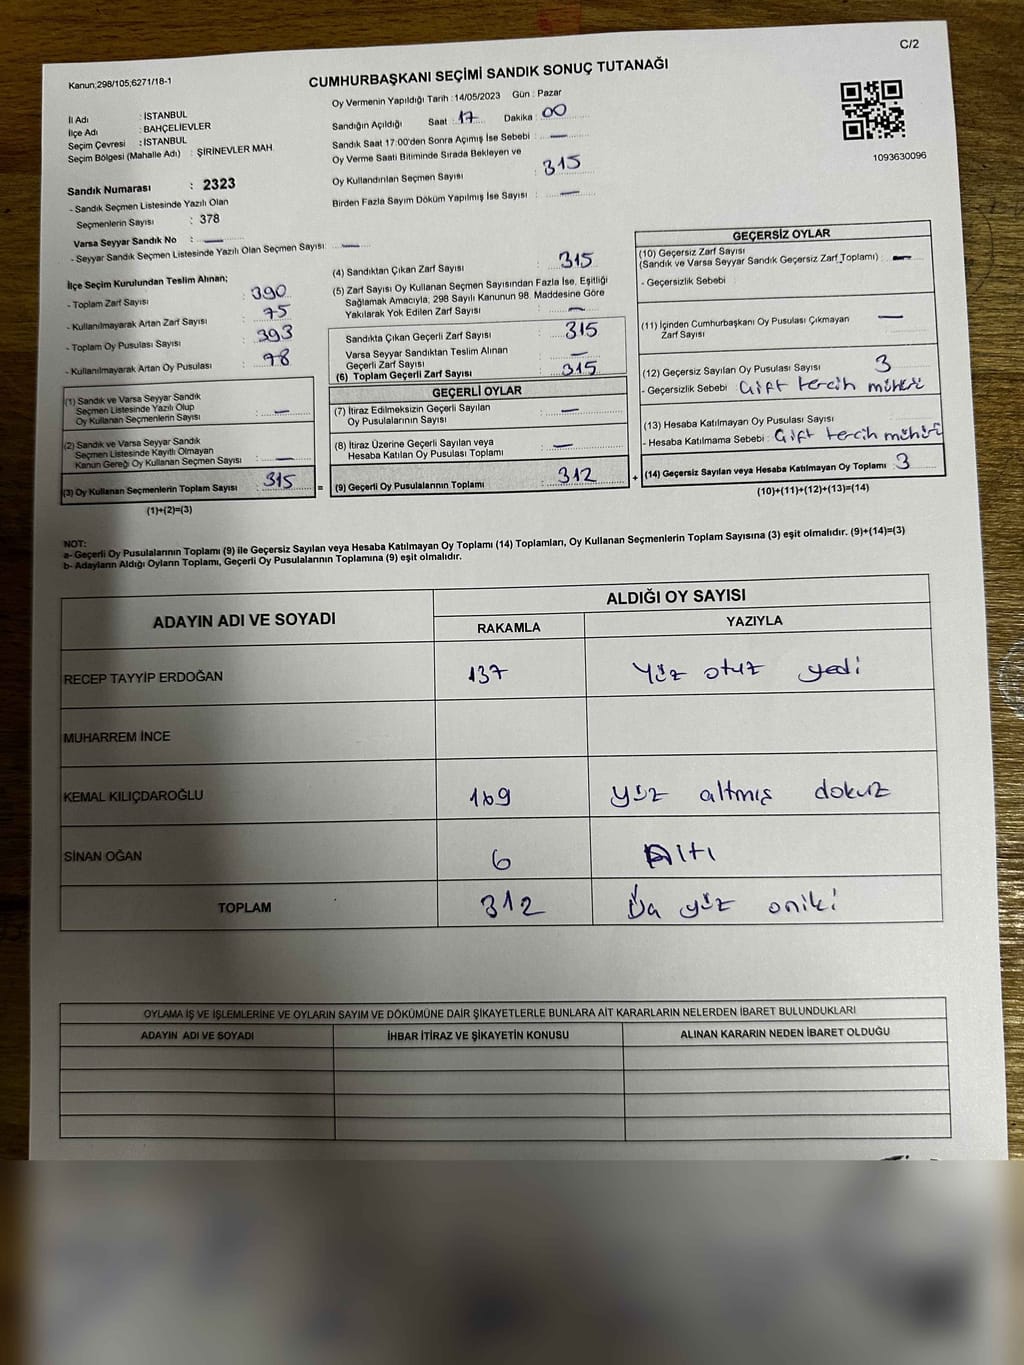 C/2
Kanun;298/105;6271/18-1
CUMHURBAŞKANI SEÇİMİ SANDIK SONUÇ TUTANAĞI
İl Adı : İSTANBUL
İlçe Adı : BAHÇELİEVLER
Seçim Çevresi : İSTANBUL
Seçim Bölgesi (Mahalle Adı) : ŞİRİNEVLER MAH.
Sandık Numarası : 2323
- Sandık Seçmen Listesinde Yazılı Olan
Seçmenlerin Sayısı : 378
Varsa Seyyar Sandık No : —
- Seyyar Sandık Seçmen Listesinde Yazılı Olan Seçmen Sayısı: —
Oy Vermenin Yapıldığı Tarih : 14/05/2023 Gün : Pazar
Sandığın Açıldığı Saat : 17 Dakika : 00
Sandık Saat 17:00'den Sonra Açımış İse Sebebi : —
Oy Verme Saati Bitiminde Sırada Bekleyen ve
Oy Kullandırılan Seçmen Sayısı : 315
Birden Fazla Sayım Döküm Yapılmış İse Sayısı : —
1093630096
İlçe Seçim Kurulundan Teslim Alınan;
- Toplam Zarf Sayısı : 390
- Kullanılmayarak Artan Zarf Sayısı : 75
- Toplam Oy Pusulası Sayısı : 393
- Kullanılmayarak Artan Oy Pusulası : 78
(1) Sandık ve Varsa Seyyar Sandık
Seçmen Listesinde Yazılı Olup
Oy Kullanan Seçmenlerin Sayısı : —
(2) Sandık ve Varsa Seyyar Sandık
Seçmen Listesinde Kayıtlı Olmayan
Kanun Gereği Oy Kullanan Seçmen Sayısı : —
(3) Oy Kullanan Seçmenlerin Toplam Sayısı : 315 =
(1)+(2)=(3)
(4) Sandıktan Çıkan Zarf Sayısı : 315
(5) Zarf Sayısı Oy Kullanan Seçmen Sayısından Fazla İse, Eşitliği
Sağlamak Amacıyla; 298 Sayılı Kanunun 98. Maddesine Göre
Yakılarak Yok Edilen Zarf Sayısı : —
Sandıkta Çıkan Geçerli Zarf Sayısı : 315
Varsa Seyyar Sandıktan Teslim Alınan
Geçerli Zarf Sayısı : —
(6) Toplam Geçerli Zarf Sayısı : 315
GEÇERLİ OYLAR
(7) İtiraz Edilmeksizin Geçerli Sayılan
Oy Pusulalarının Sayısı : —
(8) İtiraz Üzerine Geçerli Sayılan veya
Hesaba Katılan Oy Pusulası Toplamı : —
(9) Geçerli Oy Pusulalarının Toplamı : 312 +
GEÇERSİZ OYLAR
(10) Geçersiz Zarf Sayısı
(Sandık ve Varsa Seyyar Sandık Geçersiz Zarf Toplamı) : —
- Geçersizlik Sebebi :
(11) İçinden Cumhurbaşkanı Oy Pusulası Çıkmayan
Zarf Sayısı : —
(12) Geçersiz Sayılan Oy Pusulası Sayısı : 3
- Geçersizlik Sebebi : Çift tercih mührü
(13) Hesaba Katılmayan Oy Pusulası Sayısı :
- Hesaba Katılmama Sebebi : Çift tercih mührü
(14) Geçersiz Sayılan veya Hesaba Katılmayan Oy Toplamı : 3
(10)+(11)+(12)+(13)=(14)
NOT:
a- Geçerli Oy Pusulalarının Toplamı (9) ile Geçersiz Sayılan veya Hesaba Katılmayan Oy Toplamı (14) Toplamları, Oy Kullanan Seçmenlerin Toplam Sayısına (3) eşit olmalıdır. (9)+(14)=(3)
b- Adayların Aldığı Oyların Toplamı, Geçerli Oy Pusulalarının Toplamına (9) eşit olmalıdır.
ADAYIN ADI VE SOYADI
ALDIĞI OY SAYISI
RAKAMLA YAZIYLA
RECEP TAYYİP ERDOĞAN 137 Yüz otuz yedi
MUHARREM İNCE
KEMAL KILIÇDAROĞLU 169 yüz altmış dokuz
SİNAN OĞAN 6 Altı
TOPLAM 312 yüz oniki
OYLAMA İŞ VE İŞLEMLERİNE VE OYLARIN SAYIM VE DÖKÜMÜNE DAİR ŞİKAYETLERLE BUNLARA AİT KARARLARIN NELERDEN İBARET BULUNDUKLARI
ADAYIN ADI VE SOYADI İHBAR İTİRAZ VE ŞİKAYETİN KONUSU ALINAN KARARIN NEDEN İBARET OLDUĞU